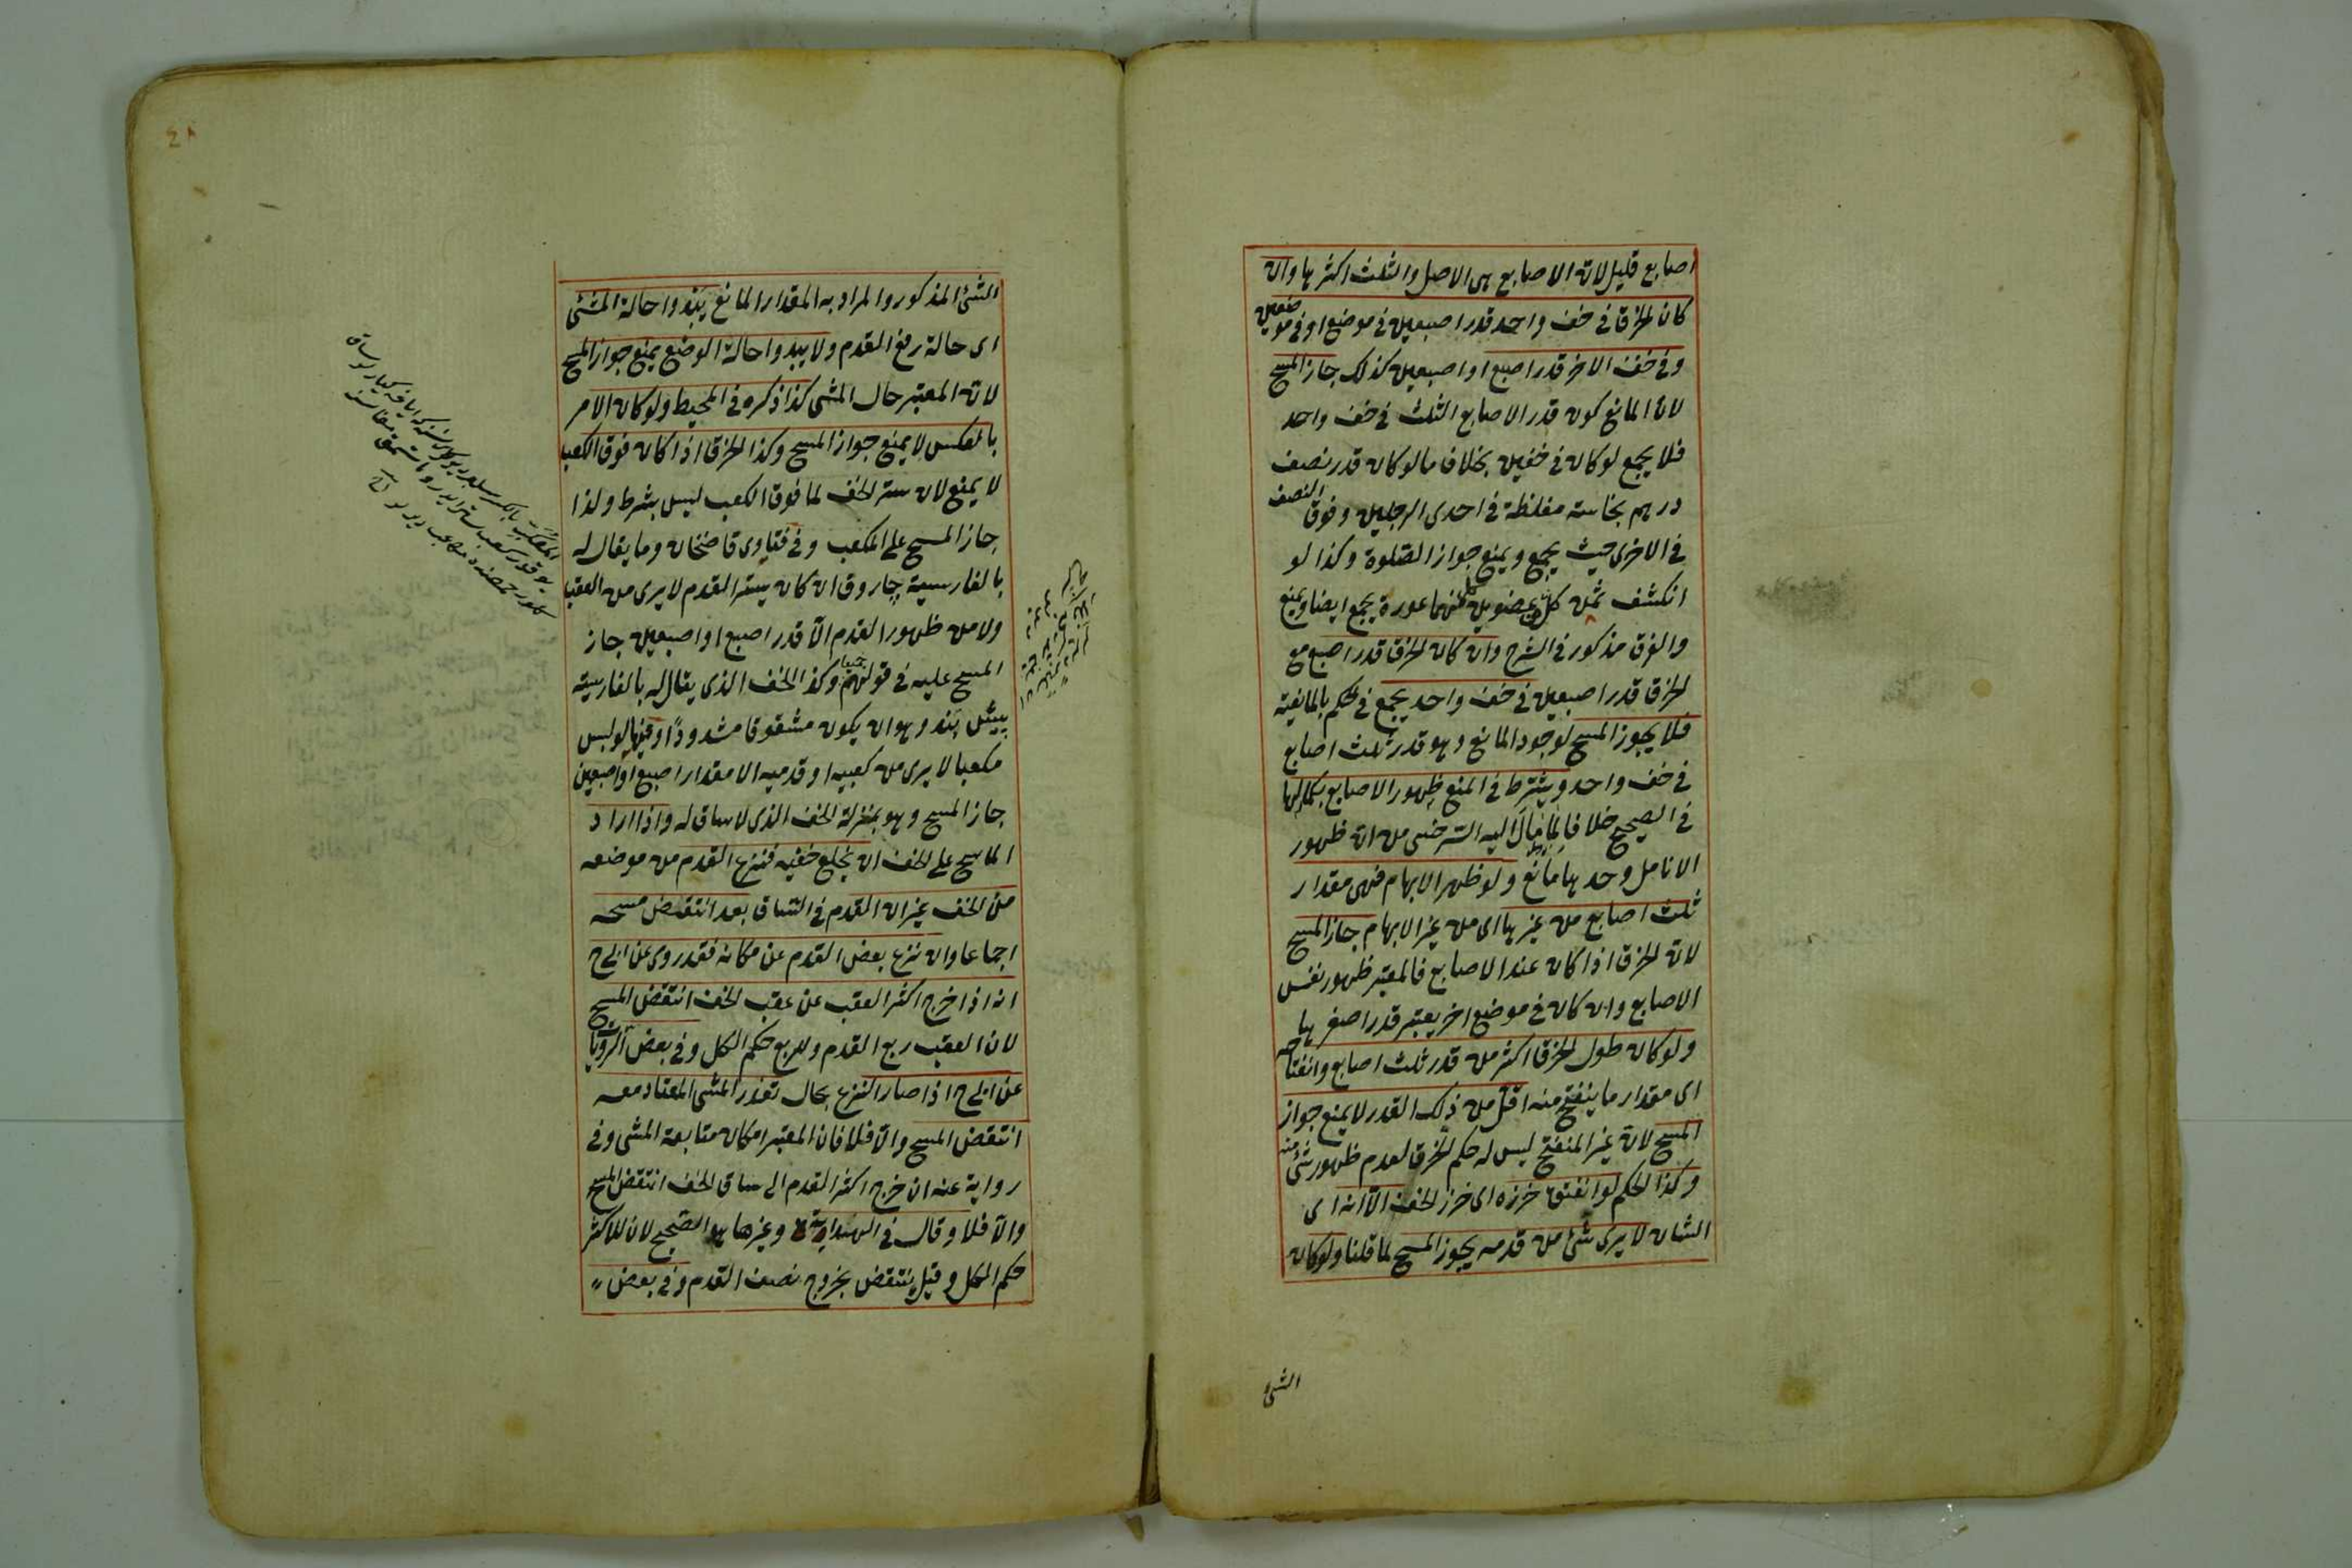 اصابع قليل لان الاصابع هى الاصل والثلث اكثرها وان
كان الخرق فى خف واحد قدر اصبعين فى موضع او فى موضعين
وفى خف الاخر قدر اصبع او اصبعين كذلك جاز المسح
لان المانع كون قدر الاصابع الثلث فى خف واحد
فلا يجمع لو كان فى خفين بخلاف ما لو كان قدر نصف
درهم نجاسته مغلظة فى احدى الرجلين وفوق النصف
فى الاخرى حيث يجمع ويمنع جواز الصلوة وكذا لو
انكشف ثمن كل عضوين منهما عورة يجمع ايضا ويمنع
والفرق مذكور فى الشرح وان كان الخرق قدر اصبع مع
الخرق قدر اصبعين فى خف واحد يجمع فى الحكم بالمانعية
فلا يجوز المسح لوجود المانع وهو قدر ثلث اصابع
فى خف واحد ويشترط فى المنع ظهور الاصابع بكمالها
فى الصحيح خلافا لما مال اليه السرخسى من ان ظهور
الانامل وحدها مانع ولو ظهر الابهام فهى مقدار
ثلث اصابع من غيرها اى من غير الابهام جاز المسح
لان الخرق اذا كان عند الاصابع فالمعتبر ظهور نفس
الاصابع وان كان فى موضع اخر يعتبر قدر اصغرها
ولو كان طول الخرق اكثر من قدر ثلث اصابع وانفتاحه
اى مقدار ما ينفتح منه اقل من ذلك القدر لا يمنع جواز
المسح لان غير المنفتح ليس له حكم الخرق لعدم ظهور شئ منه
وكذا الحكم لو انفتق خرزه اى خرز الخف الا انه اى
الشان لا يرى شئ من قدمه يجوز المسح لما قلنا ولو كان
الشئ
٤٨
الشئ المذكور والمراد به المقدار المانع يبدوا حالة المشى
اى حالة رفع القدم ولا يبدوا حالة الوضع يمنع جواز المسح
لان المعتبر حال المشى كذا ذكره فى المحيط ولو كان الامر
بالعكس لا يمنع جواز المسح وكذا الخرق اذا كان فوق الكعب
لا يمنع لان ستر الخف لما فوق الكعب ليس بشرط ولذا
جاز المسح على المكعب وفى فتاوى قاضخان وما يقال له
بالفارسية چاروق ان كان يستر القدم لا يرى من العقب
ولا من ظهور القدم الا قدر اصبع او اصبعين جاز
المسح عليه فى قولهم جميعا وكذا الخف الذى يقال له بالفارسية
پيش بند وهو ان يكون مشقوقا مشدودا وفيها لو لبس
مكعبا لا يرى من كعبيه او قدميه الا مقدار اصبع او اصبعين
جاز المسح وهو بمنزلة الخف الذى لا ساق له واذا اراد
الماسح على الخف ان يخلع خفيه فنزع القدم من موضعه
من الخف غير ان القدم فى الساق بعد انتقض مسحه
اجماعا وان نزع بعض القدم عن مكانه فقد روى عن ابى ح
انه اذا خرج اكثر العقب عن عقب الخف انتقض المسح
لان العقب ربع القدم وللربع حكم الكل وفى بعض الروايات
عن ابى ح اذا صار النزع بحال تعذر المشى المعتاد معه
انتقض المسح والا فلا فان المعتبر امكان متابعة المشى وفى
رواية عنه ان خرج اكثر القدم الى ساق الخف انتقض المسح
والا فلا وقال فى الهداية وغيرها هو الصحيح لان للاكثر
حكم الكل وقيل ينتقض بخروج نصف القدم وفى بعض